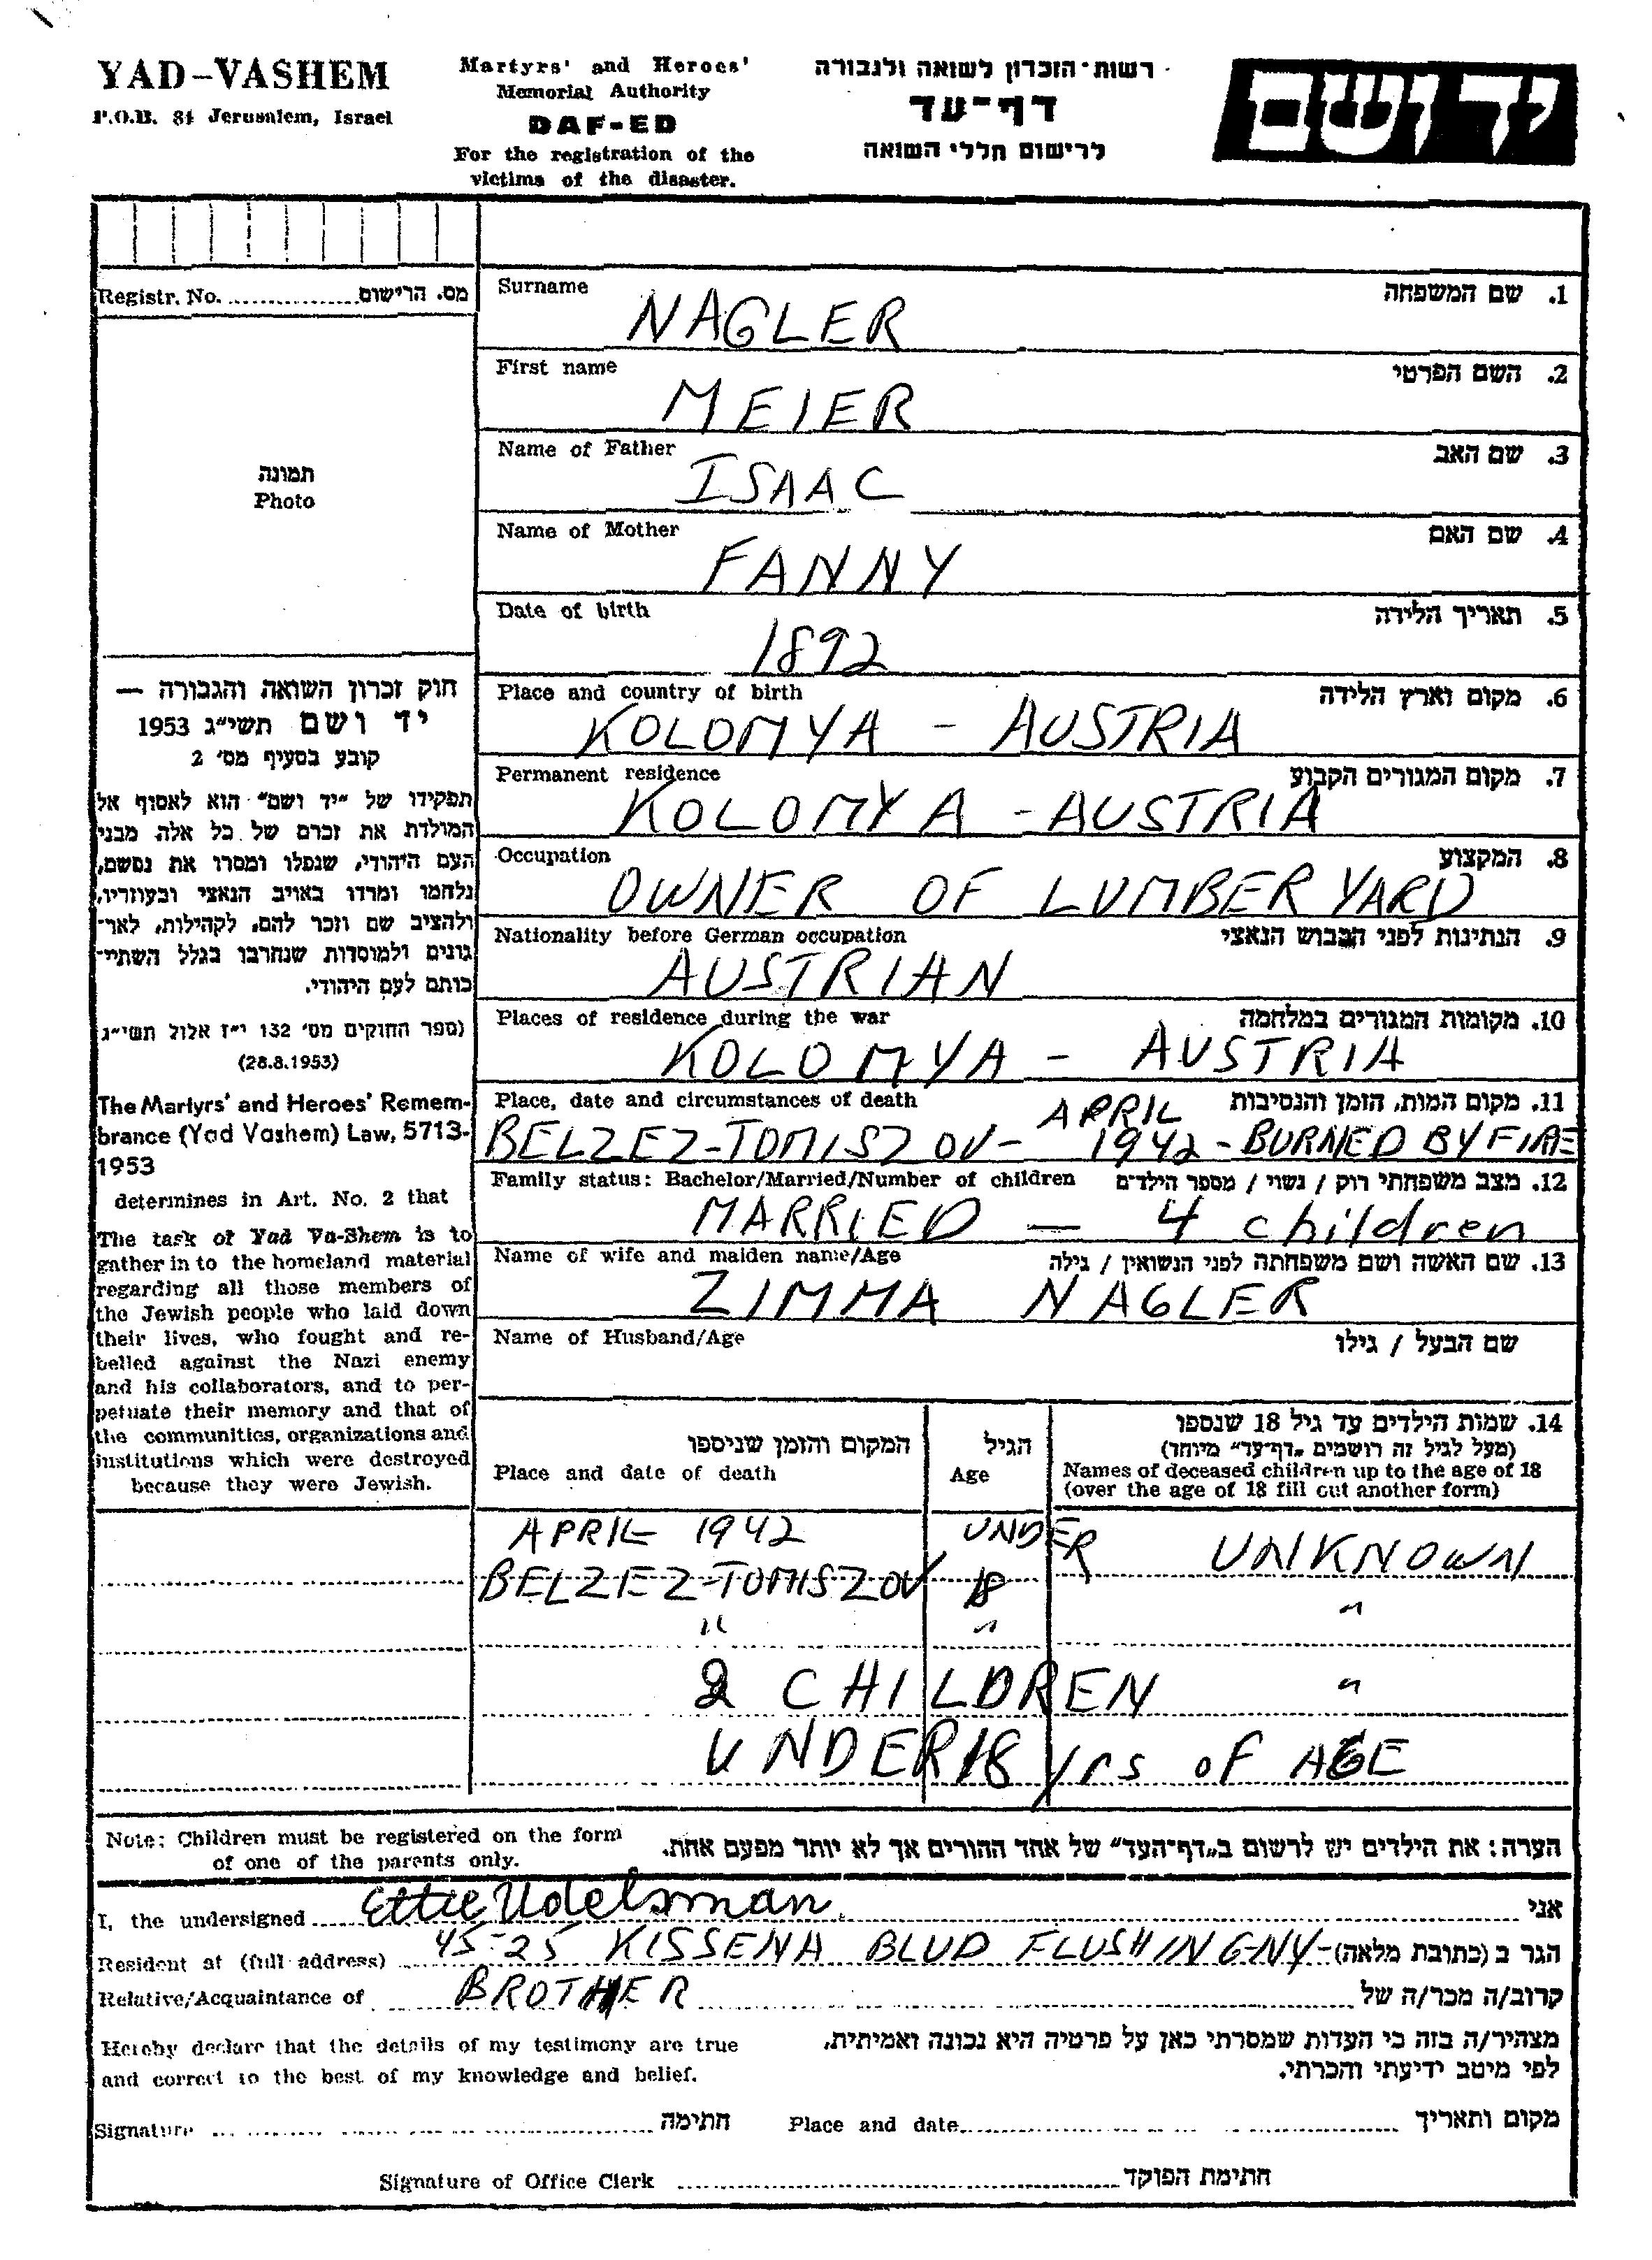 YAD-VASHEM
P.O.B. 84 Jerusalem, Israel
Martyrs' and Heroes'
Memorial Authority
DAF-ED
For the registration of the
victims of the disaster.
רשות הזכרון לשואה ולגבורה
דף-עד
לרישום חללי השואה
יד ושם
Registr. No. ................ מס. הרישום
תמונה
Photo
חוק זכרון השואה והגבורה —
יד ושם תשי״ג 1953
קובע בסעיף מס׳ 2
תפקידו של ״יד ושם״ הוא לאסוף אל
המולדת את זכרם של כל אלה מבני
העם היהודי, שנפלו ומסרו את נפשם,
נלחמו ומרדו באויב הנאצי ובעוזריו,
ולהציב שם וזכר להם, לקהילות, לאר-
גונים ולמוסדות שנחרבו בגלל השתיי-
כותם לעם היהודי.
(ספר החוקים מס׳ 132 י״ז אלול תשי״ג
(28.8.1953)
The Martyrs' and Heroes' Remem-
brance (Yad Vashem) Law, 5713-
1953
determines in Art. No. 2 that
The task of Yad Va-Shem is to
gather in to the homeland material
regarding all those members of
the Jewish people who laid down
their lives, who fought and re-
belled against the Nazi enemy
and his collaborators, and to per-
petuate their memory and that of
the communities, organizations and
institutions which were destroyed
because they were Jewish.
Surname 1. שם המשפחה
NAGLER
First name 2. השם הפרטי
MEIER
Name of Father 3. שם האב
ISAAC
Name of Mother 4. שם האם
FANNY
Date of birth 5. תאריך הלידה
1892
Place and country of birth 6. מקום וארץ הלידה
KOLOMYA - AUSTRIA
Permanent residence 7. מקום המגורים הקבוע
KOLOMYA - AUSTRIA
Occupation 8. המקצוע
OWNER OF LUMBER YARD
Nationality before German occupation 9. הנתינות לפני הכבוש הנאצי
AUSTRIAN
Places of residence during the war 10. מקומות המגורים במלחמה
KOLOMYA - AUSTRIA
Place, date and circumstances of death 11. מקום המות, הזמן והנסיבות
BELZEZ-TOMISZOV- APRIL 1942 - BURNED BY FIRE
Family status: Bachelor/Married/Number of children 12. מצב משפחתי רוק / נשוי / מספר הילדים
MARRIED — 4 children
Name of wife and maiden name/Age 13. שם האשה ושם משפחתה לפני הנשואין / גילה
ZIMMA NAGLER
Name of Husband/Age שם הבעל / גילו
המקום והזמן שניספו
Place and date of death
הגיל
Age
14. שמות הילדים עד גיל 18 שנספו
(מעל לגיל זה רושמים ״דף-עד״ מיוחד)
Names of deceased children up to the age of 18
(over the age of 18 fill out another form)
APRIL 1942 UNDER UNKNOWN
BELZEZ-TOMISZOV 18
" " "
2 CHILDREN "
UNDER 18 yrs of AGE
Note: Children must be registered on the form
of one of the parents only.
הערה: את הילדים יש לרשום ב״דף-העד״ של אחד ההורים אך לא יותר מפעם אחת.
I, the undersigned Ettie Udelsman אני
Resident at (full address) 45-25 KISSENA BLUD FLUSHING-NY- הגר ב (כתובת מלאה)
Relative/Acquaintance of BROTHER קרוב/ה מכר/ה של
Hereby declare that the details of my testimony are true
and correct to the best of my knowledge and belief.
מצהיר/ה בזה כי העדות שמסרתי כאן על פרטיה היא נכונה ואמיתית,
לפי מיטב ידיעתי והכרתי.
Signature חתימה Place and date מקום ותאריך
Signature of Office Clerk חתימת הפוקד